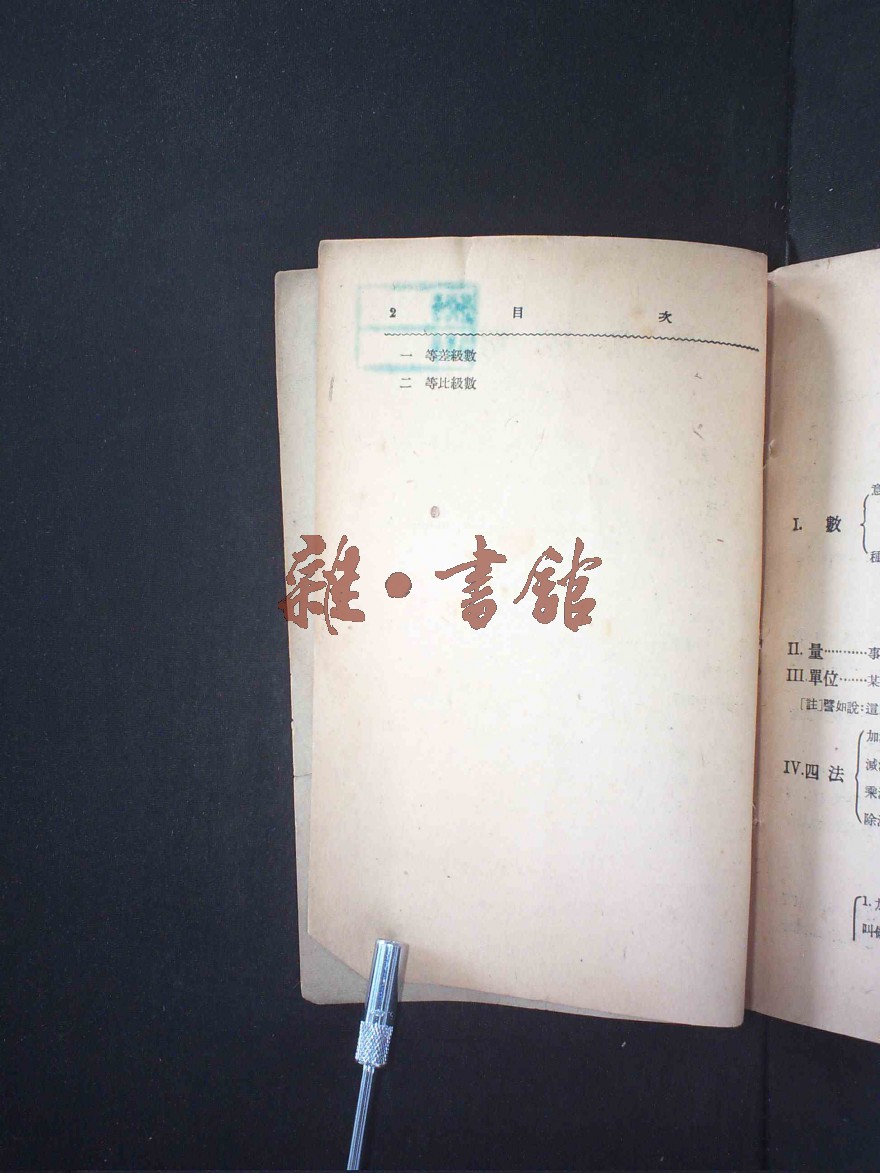 2 目 次
一 等差級數
二 等比級數
雜·書館
I. 數
II. 量…………事
III 單位……某
[註]譬如說:這
IV.四 法
加
減
乘
除
1.
叫